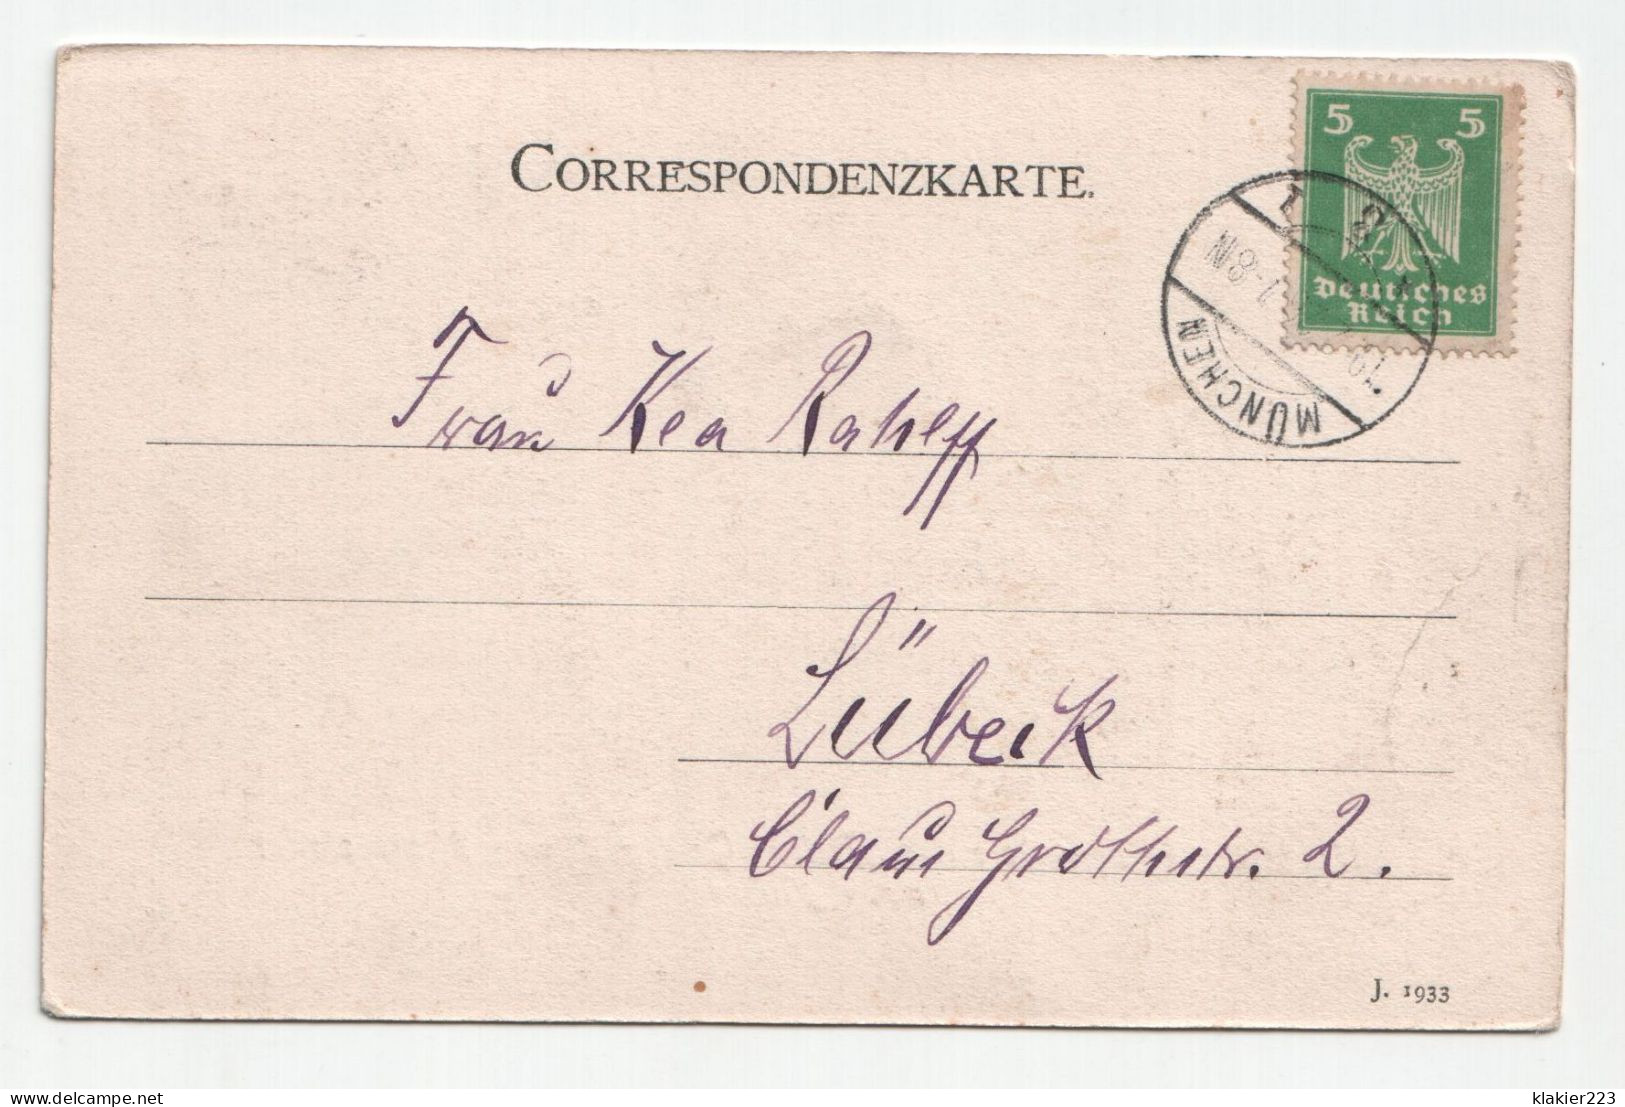 CORRESPONDENZKARTE.
5 5
Deutsches
Reich
MÜNCHEN
7-8 N
Frau Kea Rahlff
Lübeck
Claus Grothstr. 2.
J. 1933
delcampe.net
klakier223